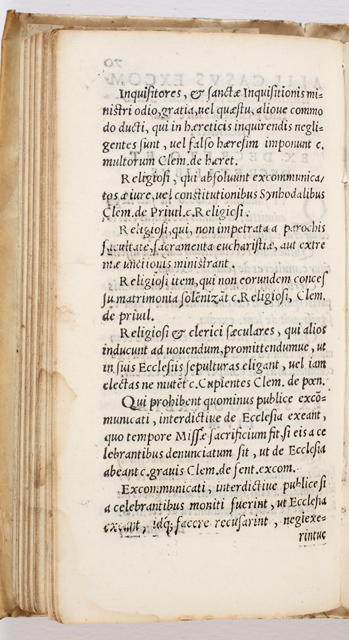 70
Inquisitores, & sanctæ Inquisitionis mi-
nistri odio, gratia, uel quæstu, alioue commo
do ducti, qui in hæreticis inquirendis negli-
gentes sunt, uel falso hæresim imponunt c.
multorum Clem. de hæret.
Religiosi, qui absoluunt excommunica-
tos a iure, uel constitutionibus Synhodalibus
Clem. de Priuil. c. Religiosi.
Religiosi, qui, non impetrata a parochis
facultate, sacramenta eucharistiæ, aut extre
mæ unctionis ministrant.
Religiosi item, qui non eorundem conces
su matrimonia solēnizāt c. Religiosi, Clem.
de priuil.
Religiosi & clerici sæculares, qui alios
inducunt ad uouendum, promittendumue, ut
in suis Ecclesiis sepulturas eligant, uel iam
electas ne mutēt c. Cupientes Clem. de pœn.
Qui prohibent quominus publice excō-
municati, interdictiue de Ecclesia exeant,
quo tempore Missæ sacrificium fit, si eis a ce
lebrantibus denunciatum sit, ut de Ecclesia
abeant c. grauis Clem. de sent. excom.
Excommunicati, interdictiue publice si
a celebrantibus moniti fuerint, ut Ecclesia
exeant, idq; facere recusarint, neglexe-
rintue